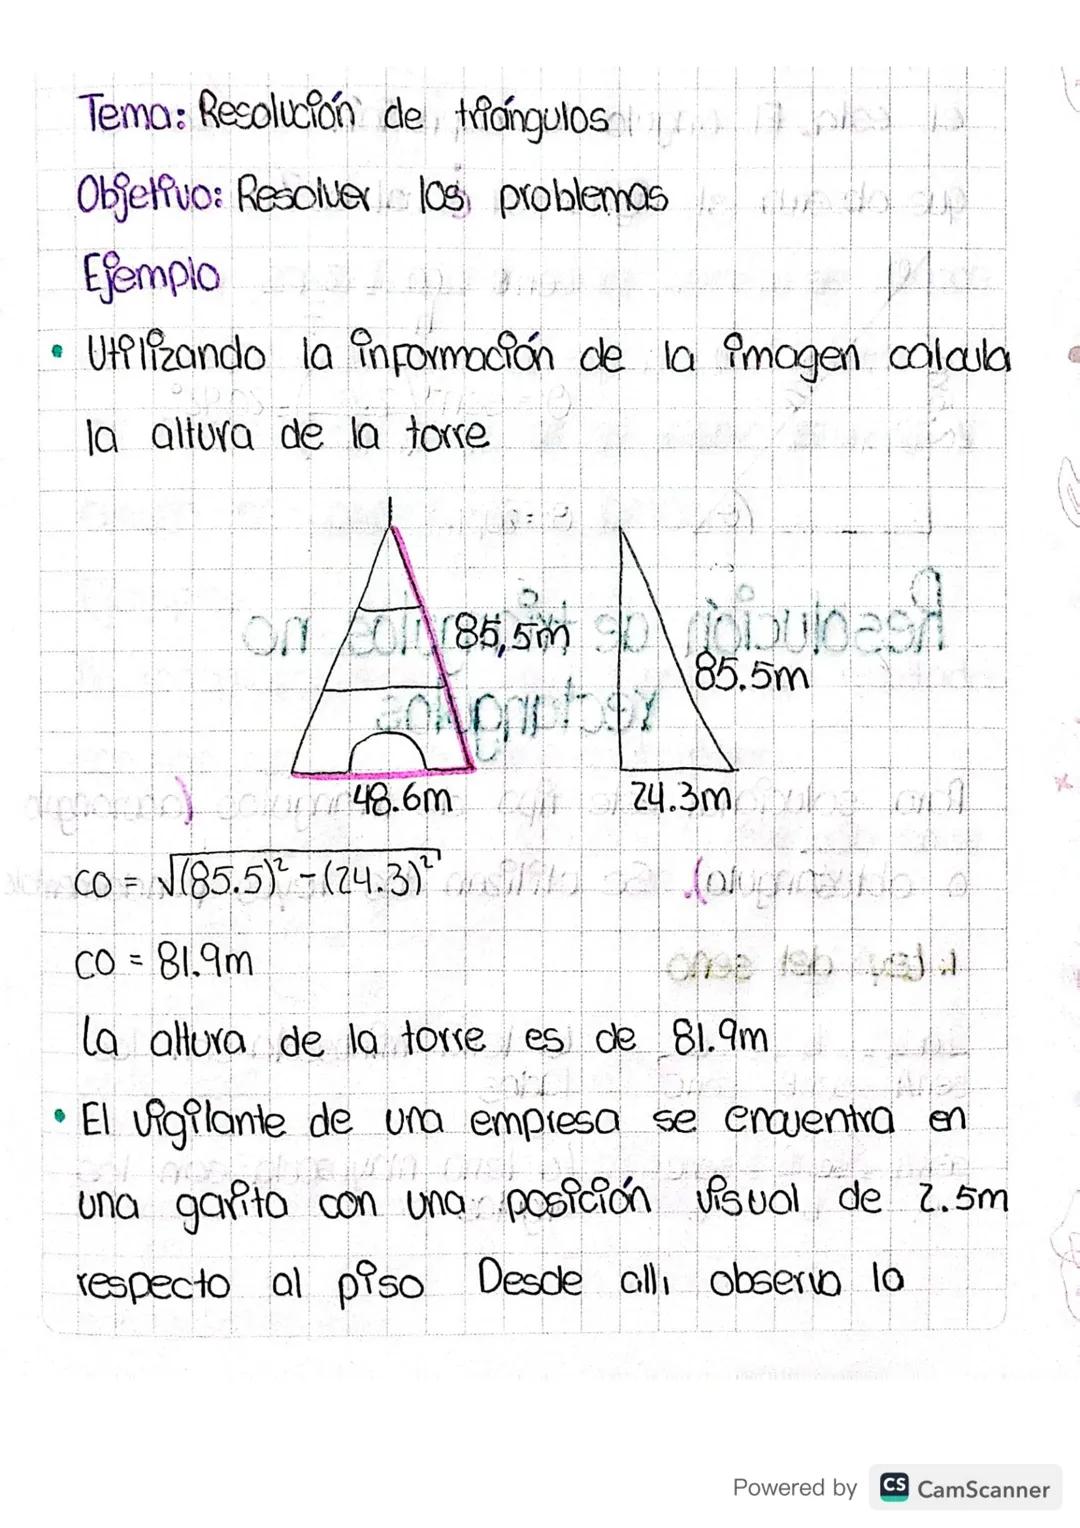 Tema: Resolución de triángulos
Objetivo: Resolver los problemas
Ejemplo
• Utilizando la información de la imagen calcula
la altura de la torre
85,5m
85.5m
48.6m
24.3m
CO = √(85.5)² - (24.3)²
CO = 81.9m
La altura de la torre es de 81.9m
• El vigilante de una empresa se encuentra en
una garita con una posición visual de 2.5m
respecto al piso Desde alli observa la
Powered by CS CamScanner